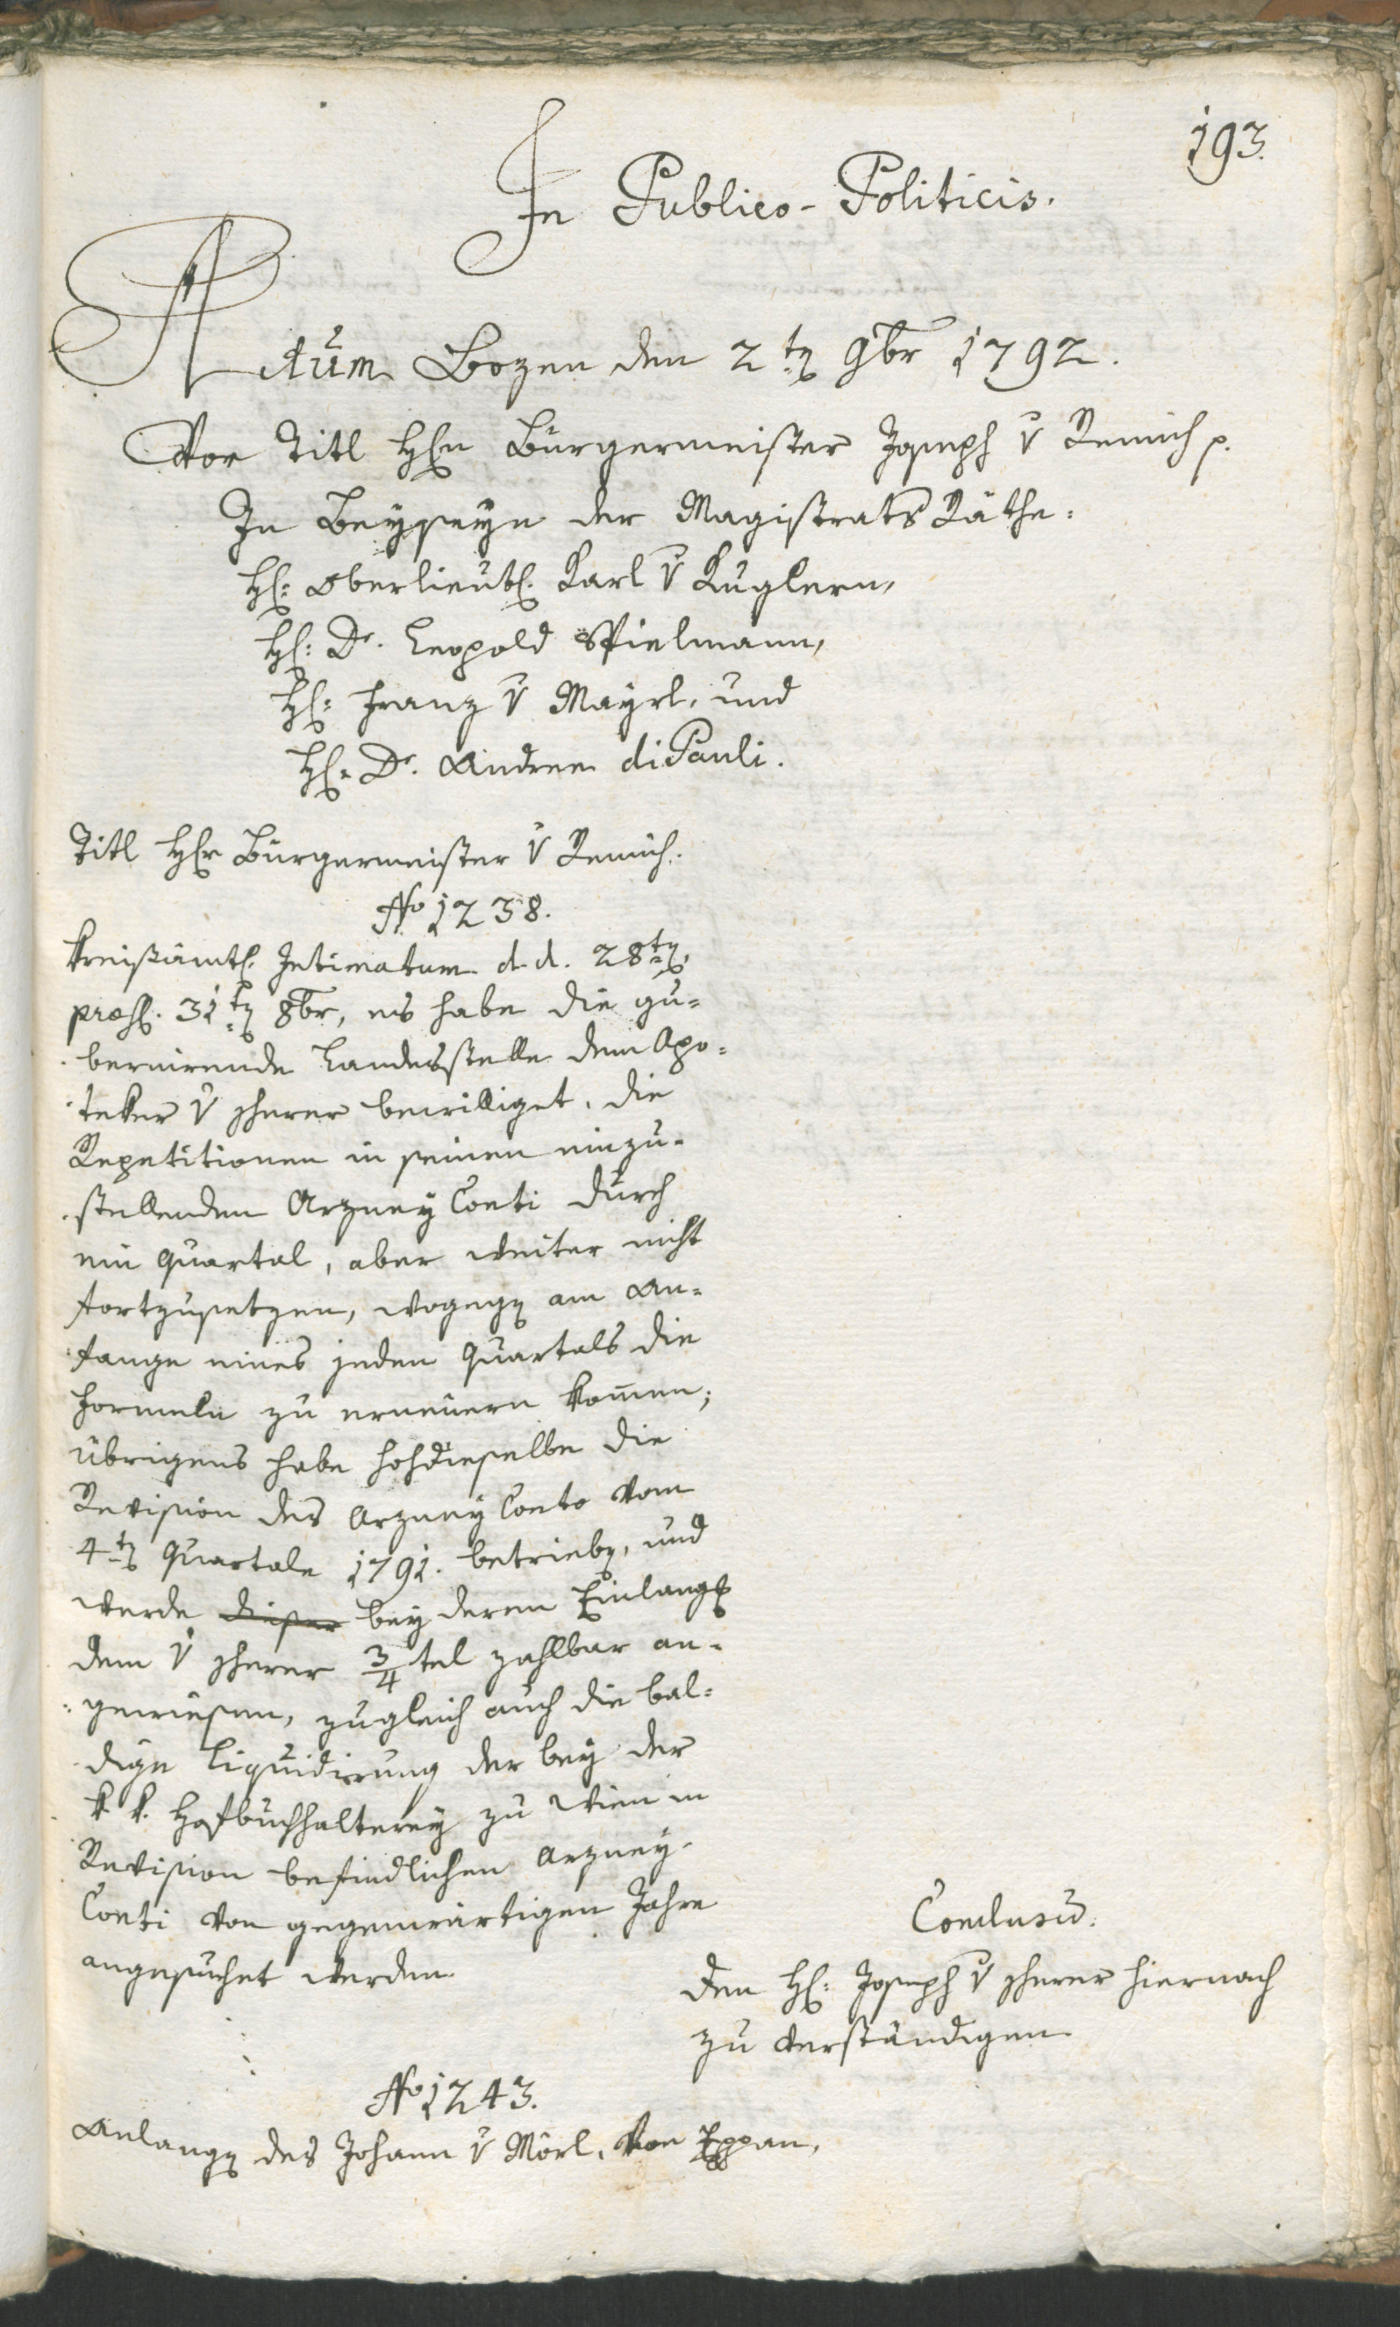 193.
In Publico-Politicis.
Actum Bozen den 2ten 9br 1792.
Vor Titl Hℓn Bürgermeister Joseph v Remich p.
In Beyseyn der Magistrats Räthe:
Hℓ: Oberlieutℓ. Karl v Kuglern,
Hℓ: Dr. Leopold Spielmann,
Hℓ: Franz v Mayrl, und
Hℓ: Dr. Andree diPauli.
Titl Hℓr Bürgermeister v Remich.
No 1238.
Kreisämtℓ. Intimatum d.d. 28ten,
præsℓ. 31ten 8br, es habe die gu=
bernirende Landesstelle dem Apo=
teker v Scherer bewilliget, die
Repetitionen in seinen einzu=
stellenden Arzney Conti durch
ein Quartal, aber weiter nicht
fortzusetzen, wogegen am An=
fange eines jeden Quartals die
Formeln zu erneuern kom̄en;
übrigens habe hochdieselbe die
Revision des Arzney Conto vom
4ten Quartale 1791. betrieben, und
werde dieser bey deren Einlangℓ
dem v Scherer 3/4tel zahlbar an=
gewiesen, zugleich auch die bal=
dige Liquidirung der bey der
k. k. Hofbuchhalterey zu Wien in
Revision befindlichen Arzney=
Conti von gegenwärtigen Jahre
angesuchet werden.
Conclusū.
Den Hℓ: Joseph v Scherer hiernach
zu verständigen.
No 1243.
Anlangen des Johann v Mörl, von Eppan,